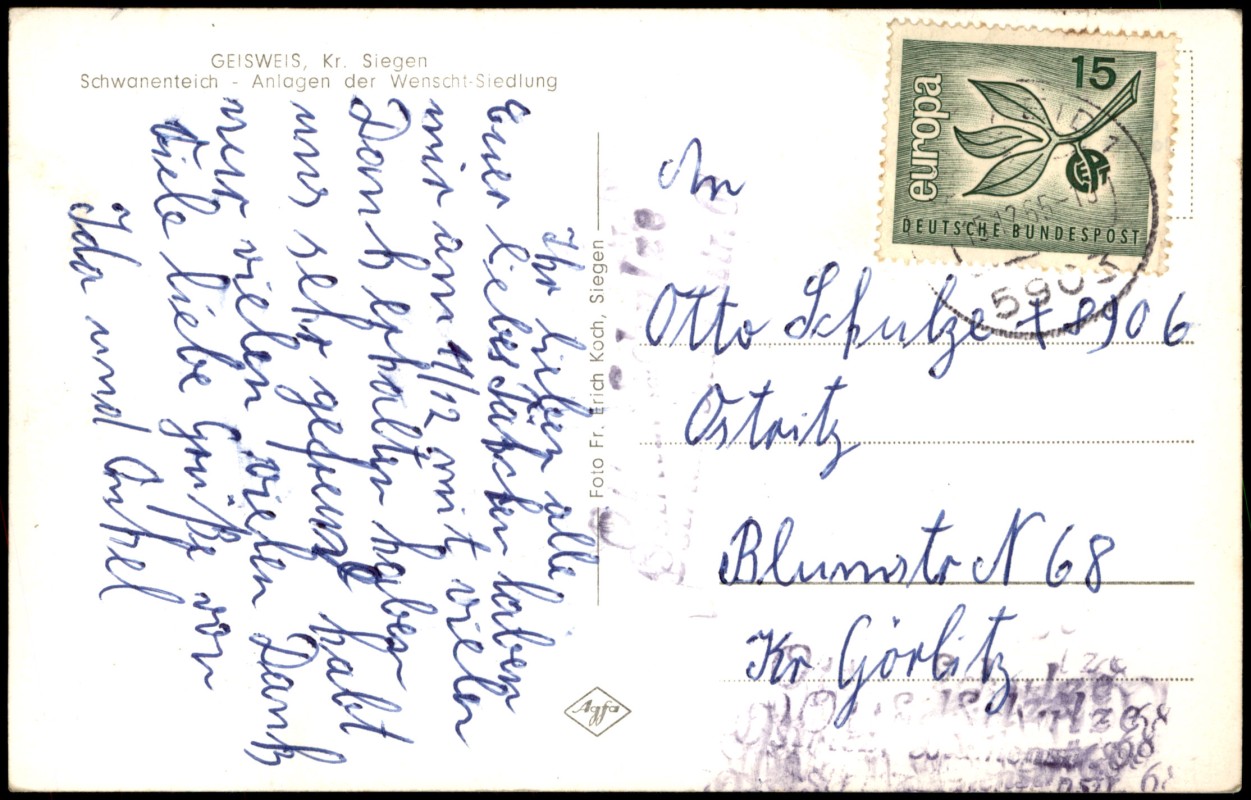 GEISWEIS, Kr. Siegen
Schwanenteich - Anlagen der Wenscht-Siedlung
Ihr lieben alle
Euer liebes Päkchen haben
wir am 11/12 mit vielen
Dank erhalten haben
uns sehr gefreut habt
nur vielen vielen Dank
Viele liebe Grüße von
Ida und Onkel
Foto Fr. Erich Koch, Siegen
Agfa
europa
15
DEUTSCHE BUNDESPOST
5903
An
Otto Schulze + 8906
Ostritz
Blumstr N 68
Kr Görlitz